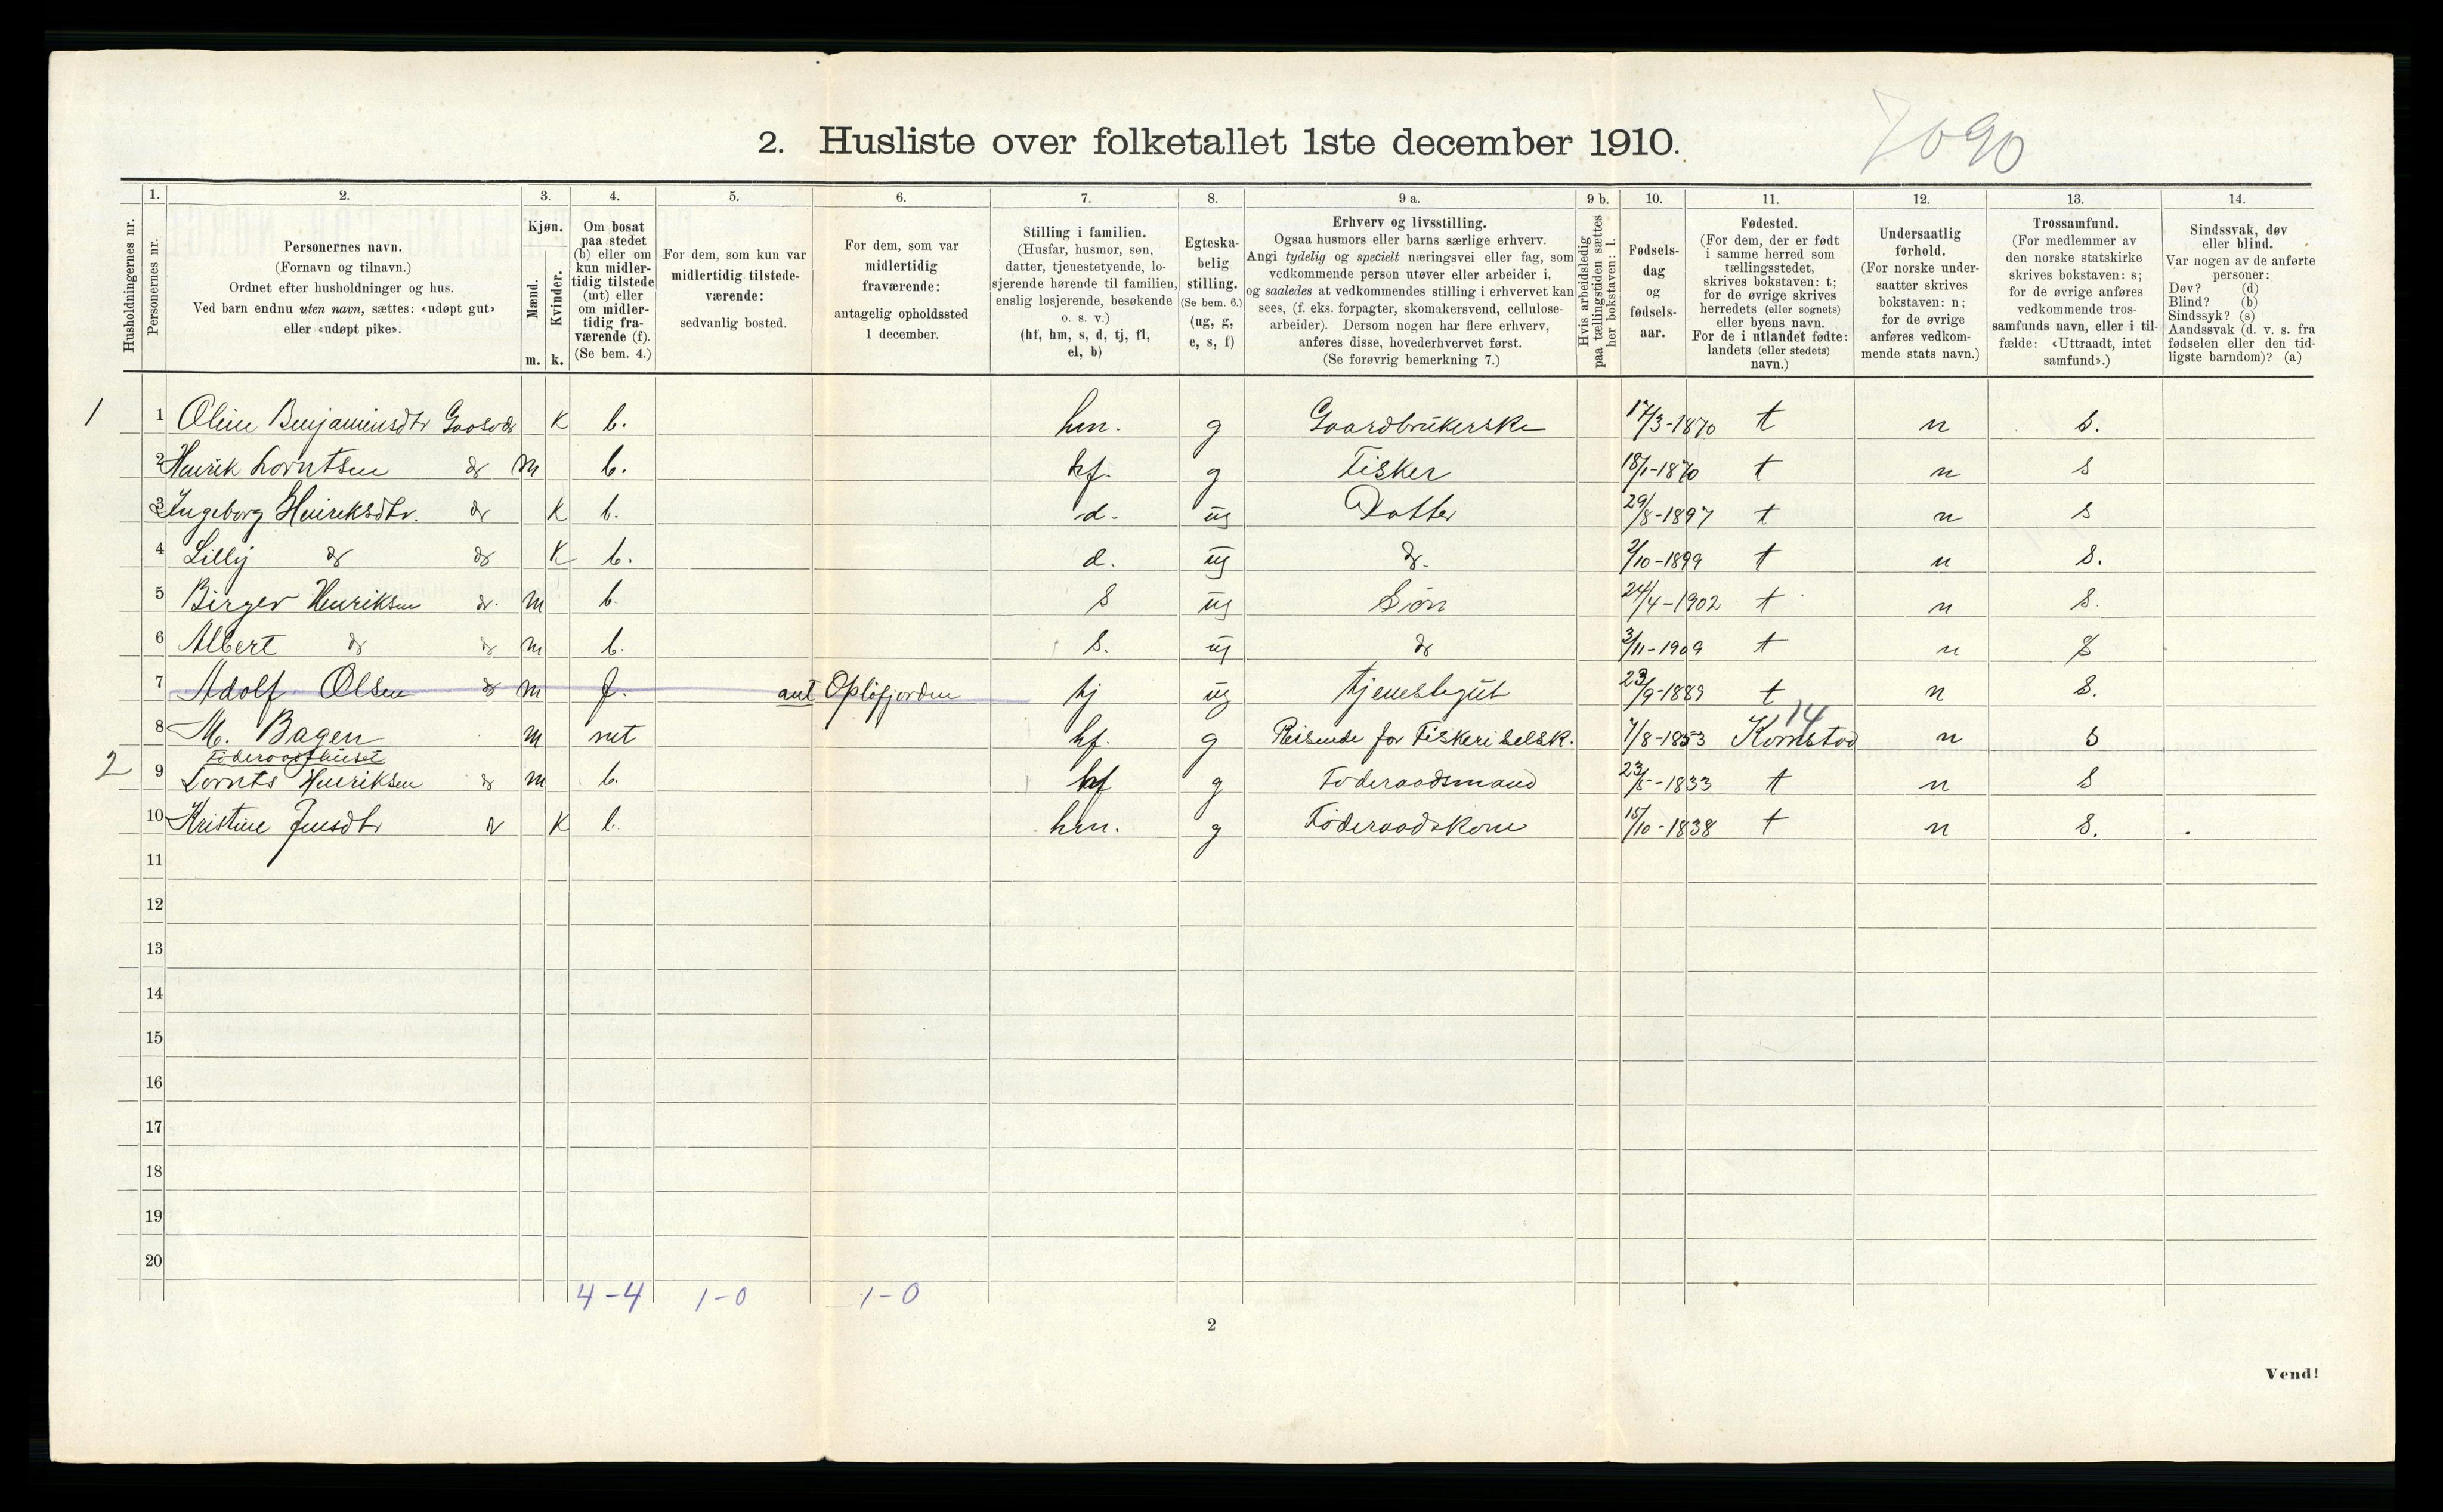 2. Husliste over folketallet 1ste december 1910.
7090
Husholdningernes nr.
1.
Personernes nr.
2.
Personernes navn.
(Fornavn og tilnavn.)
Ordnet efter husholdninger og hus.
Ved barn endnu uten navn, sættes: «udøpt gut»
eller «udøpt pike».
3.
Kjøn.
Mænd.
Kvinder.
m. k.
4.
Om bosat
paa stedet
(b) eller om
kun midler-
tidig tilstede
(mt) eller
om midler-
tidig fra-
værende (f).
(Se bem. 4.)
5.
For dem, som kun var
midlertidig tilstede-
værende:
sedvanlig bosted.
6.
For dem, som var
midlertidig
fraværende:
antagelig opholdssted
1 december.
7.
Stilling i familien.
(Husfar, husmor, søn,
datter, tjenestetyende, lo-
sjerende hørende til familien,
enslig losjerende, besøkende
o. s. v.)
(hf, hm, s, d, tj, fl,
el, b)
8.
Egteska-
belig
stilling.
(Se bem. 6.)
(ug, g,
e, s, f)
9 a.
Erhverv og livsstilling.
Ogsaa husmors eller barns særlige erhverv.
Angi tydelig og specielt næringsvei eller fag, som
vedkommende person utøver eller arbeider i,
og saaledes at vedkommendes stilling i erhvervet kan
sees, (f. eks. forpagter, skomakersvend, cellulose-
arbeider). Dersom nogen har flere erhverv,
anføres disse, hovederhvervet først.
(Se forøvrig bemerkning 7.)
9 b.
Hvis arbeidsledig
paa tællingstiden sættes
her bokstaven: l.
10.
Fødsels-
dag
og
fødsels-
aar.
11.
Fødested.
(For dem, der er født
i samme herred som
tællingsstedet,
skrives bokstaven: t;
for de øvrige skrives
herredets (eller sognets)
eller byens navn.
For de i utlandet fødte:
landets (eller stedets)
navn.)
12.
Undersaatlig
forhold.
(For norske under-
saatter skrives
bokstaven: n;
for de øvrige
anføres vedkom-
mende stats navn.)
13.
Trossamfund.
(For medlemmer av
den norske statskirke
skrives bokstaven: s;
for de øvrige anføres
vedkommende tros-
samfunds navn, eller i til-
fælde: «Uttraadt, intet
samfund».)
14.
Sindssvak, døv
eller blind.
Var nogen av de anførte
personer:
Døv? (d)
Blind? (b)
Sindssyk? (s)
Aandssvak (d. v. s. fra
fødselen eller den tid-
ligste barndom)? (a)
1 1 Oline Benjaminsdtr K b. hm. g Gaardbrukerske 17/3-1870 t n S.
2 Henrik Lorntsen do m b. hf. g Fisker 18/1-1870 t n s
3 Ingeborg Henreksdtr. do K b. d. ug Datter 29/8-1897 t n s
4 Lilly do do K b. d. ug do. 2/10-1899 t n S.
5 Birger Henriksen do. m b. S ug Søn 24/4-1902 t n S.
6 Albert do do m b. S. ug do 3/11-1909 t n S
7 Adolf Olsen do m f. ant Opløfjorden tj ug tjenestegut 23/9-1889 t n S.
14
8 M. Bagen m mt hf. g Reisende for Fiskeriselsk. 7/8-1853 Kornstad n s
Føderaadshuset
2 9 Lornts Henriksen do m b. hf g Føderaadsmand 23/5-1833 t n S
10 Kristine Jensdtr do K b. hm. g Føderaadskone 15/10-1838 t n S.
11
12
13
14
15
16
17
18
19
20
4-4 1-0 1-0
2
Vend!